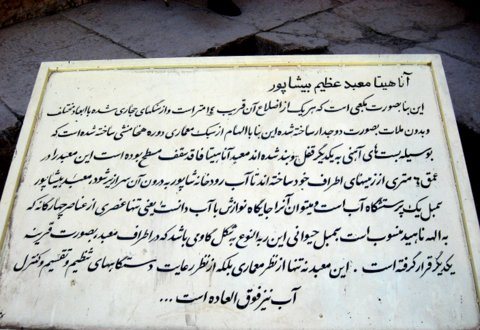 آناهیتا معبد عظیم بیشاپور
این بنا بصورت مکعبی است که هر یک از اضلاع آن قریب ۱٤ متر است و از سنگهای حجاری شده با ابعاد مختلف
و بدون ملات بصورت دو جدار ساخته شده این بنا با الهام از سبک معماری دوره هخامنشی ساخته شده است که
بوسیله بست های آهنی به یکدیگر قفل و بند شده اند معبد آناهیتا فاقد سقف مسطح بوده است این معبد را در
عمق ٦ متری از زمینهای اطراف خود ساخته اند تا آب رودخانه شاپور به درون آن سرازیر شود معبد بیشاپور
سمبل یک پرستشگاه آب است و میتوان آنرا جایگاه نوازش با آب دانست یعنی تنها عنصری از عناصر چهارگانه که
به الهه ناهید منسوب است سمبل حیوانی این ربه النوع به شکل گاو می باشد که در اطراف معبد بصورت قرینه
یکدیگر قرار گرفته است . این معبد نه تنها از نظر معماری بلکه از نظر رعایت دستگاههای تنظیم و تقسیم و کنترل
آب نیز فوق العاده است ...